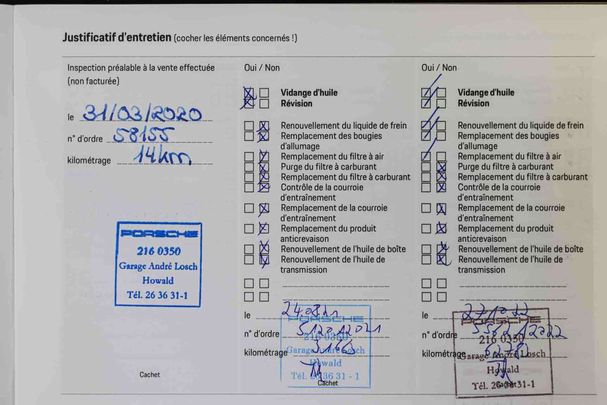 Justificatif d'entretien (cocher les éléments concernés !)
Inspection préalable à la vente effectuée
(non facturée)
le 31/03/2020
n° d'ordre 58155
kilométrage 14km
PORSCHE
216 0350
Garage André Losch
Howald
Tél. 26 36 31-1
Cachet
Oui / Non
Vidange d'huile
Révision
Renouvellement du liquide de frein
Remplacement des bougies
d'allumage
Remplacement du filtre à air
Purge du filtre à carburant
Remplacement du filtre à carburant
Contrôle de la courroie
d'entraînement
Remplacement de la courroie
d'entraînement
Remplacement du produit
anticrevaison
Renouvellement de l'huile de boîte
Renouvellement de l'huile de
transmission
le
n° d'ordre
kilométrage
PORSCHE
216 0350
Garage André Losch
Howald
Tél. 26 36 31-1
Cachet
Oui / Non
Vidange d'huile
Révision
Renouvellement du liquide de frein
Remplacement des bougies
d'allumage
Remplacement du filtre à air
Purge du filtre à carburant
Remplacement du filtre à carburant
Contrôle de la courroie
d'entraînement
Remplacement de la courroie
d'entraînement
Remplacement du produit
anticrevaison
Renouvellement de l'huile de boîte
Renouvellement de l'huile de
transmission
le
n° d'ordre
kilométrage
PORSCHE
216 0350
Garage André Losch
Howald
Tél. 26 36 31-1
Cachet